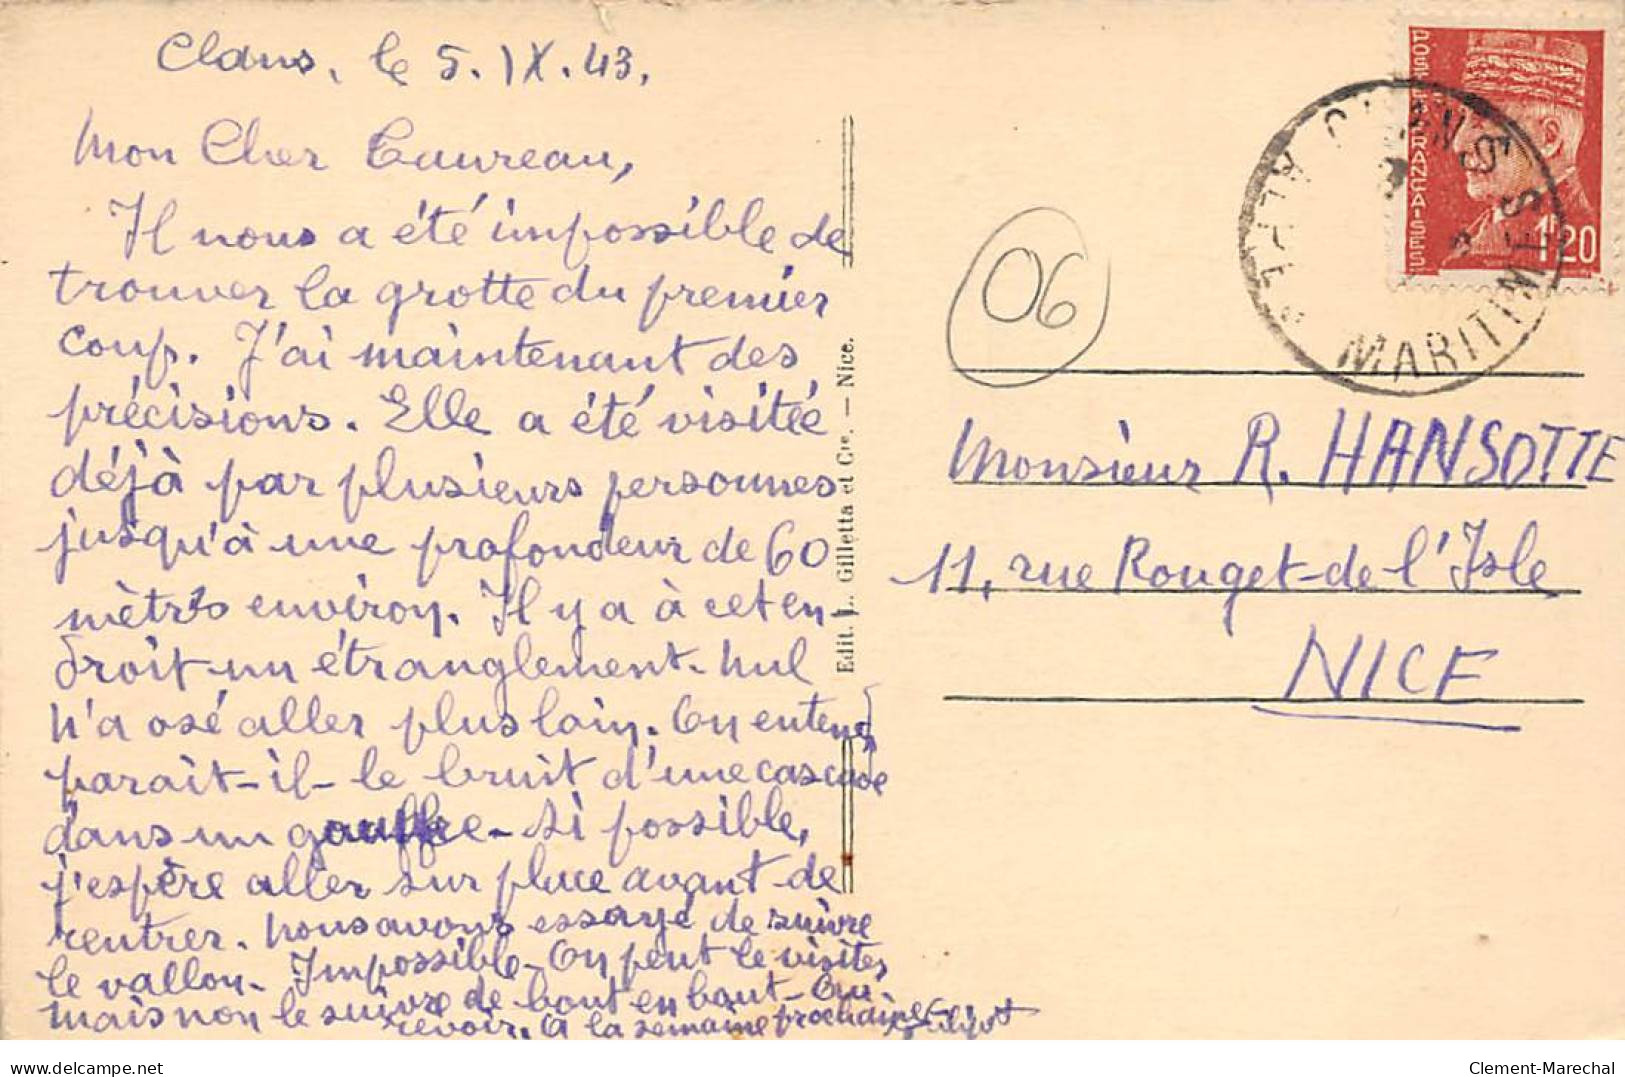 Clans, le 5.IX.43.
Mon Cher Taureau,
Il nous a été impossible de
trouver la grotte du premier
coup. J'ai maintenant des
précisions. Elle a été visitée
déjà par plusieurs personnes
jusqu'à une profondeur de 60
mètres environ. Il y a à cet en-
droit un étranglement. Nul
n'a osé aller plus loin. On entend
parait-il- le bruit d'une cascade
dans un gouffre - Si possible,
j'espère aller sur place avant de
rentrer. Nous avons essayé de suivre
le vallon. Impossible - On peut le visiter,
mais non le suivre de bout en bout - Au
revoir. A la semaine prochaine
Edit. J. Gilletta et Cie. — Nice.
06
POSTES FRANÇAISES
1F20
CLANS
ALPES MARITIMES
Monsieur R. HANSOTTE
11, rue Rouget-de l'Isle
NICE
delcampe.net
Clement-Marechal